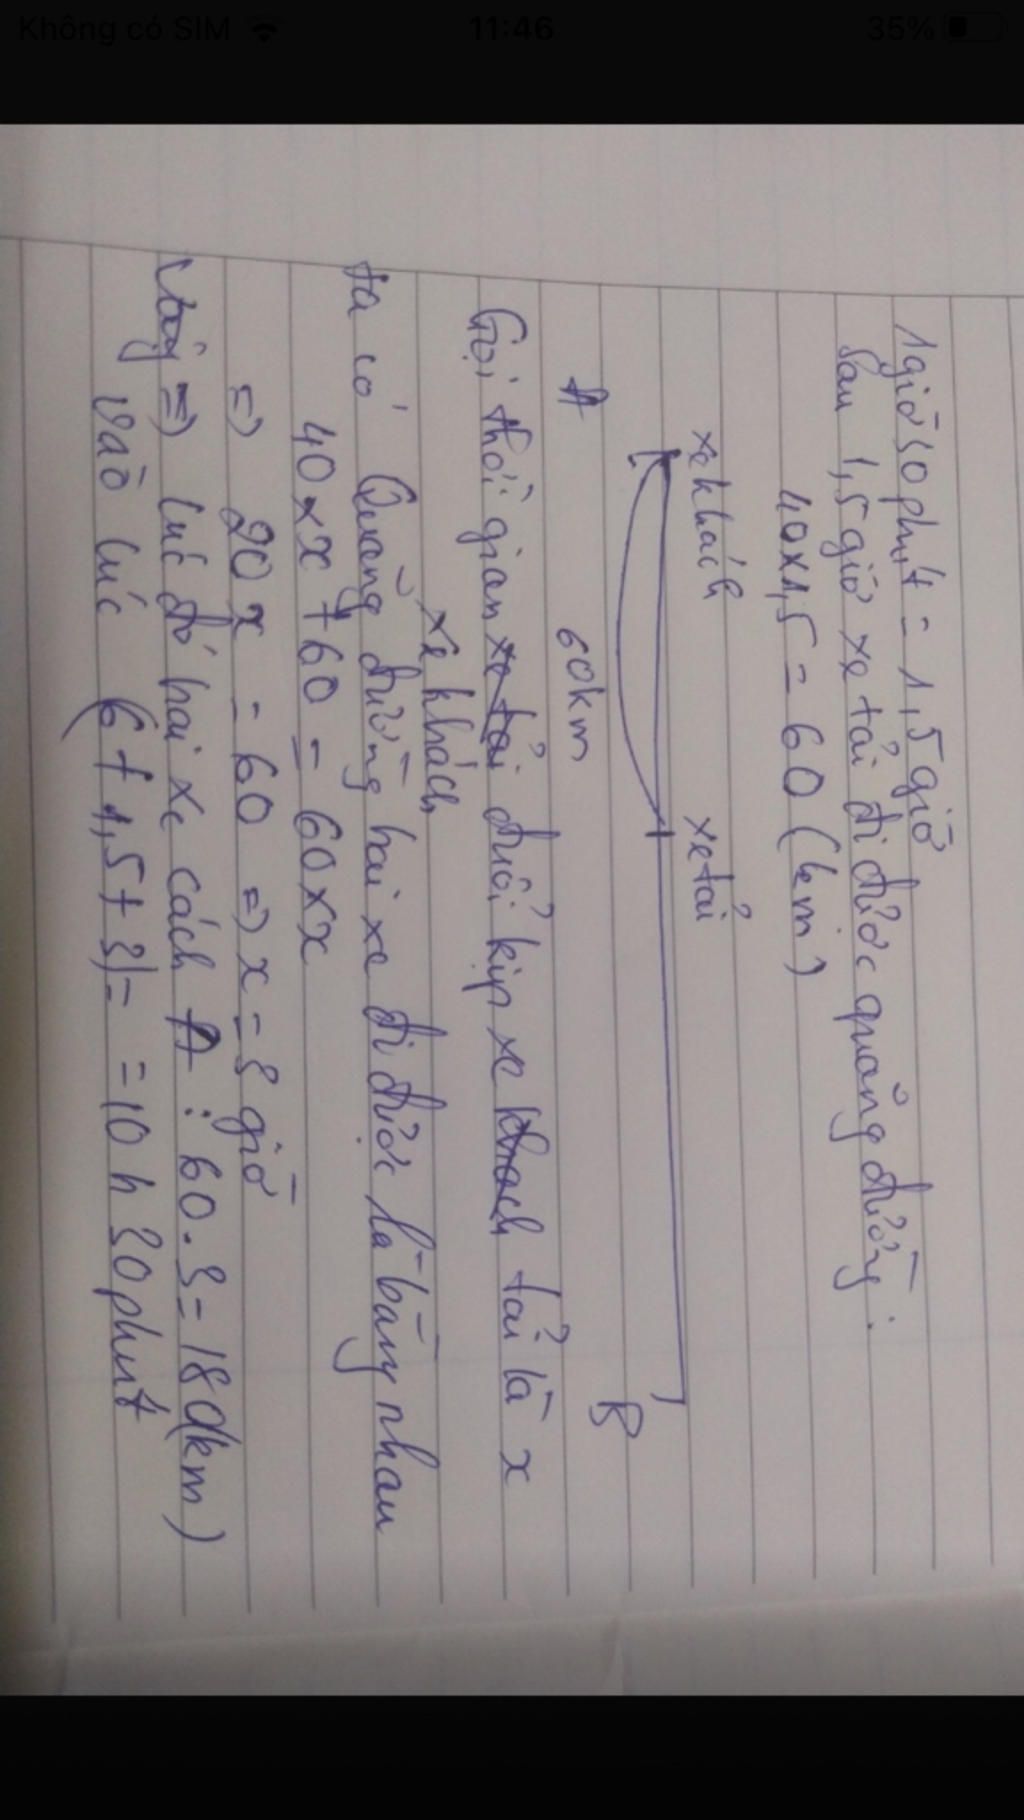 Không có SIM 11:46 35%
1 giờ 30 phút = 1,5 giờ
Sau 1,5 giờ xe tải đi được quãng đường:
40x1,5 = 60 (km)
xe khách xe tải
A 60km B
Gọi thời gian xe tải đuổi kịp xe khách tải là x
xe khách
ta có Quãng đường hai xe đi được là bằng nhau
40xx + 60 = 60xx
=> 20x = 60 => x = 3 giờ
Vậy => lúc đó hai xe cách A: 60.3 = 180(km)
vào lúc 6+1,5+3)= = 10h 30 phút